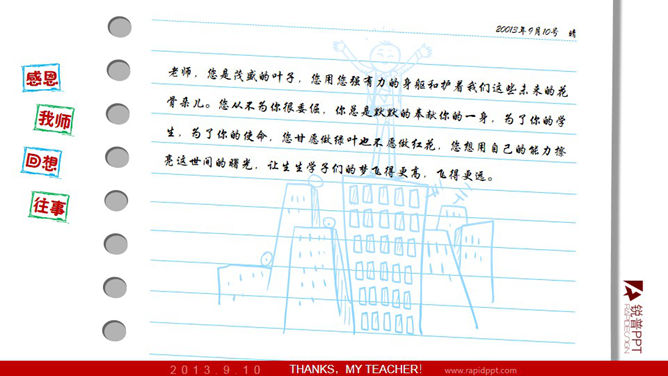 20013年9月10号 晴
老师，您是茂盛的叶子，您用您强有力的身躯和护着我们这些未来的花
骨朵儿。您从不为你很委倔，你总是默默的奉献你的一身，为了你的学
生，为了你的使命，您甘愿做绿叶也不愿做红花，您想用自己的能力擦
亮这世间的曙光，让生生学子们的梦飞得更高，飞得更远。
感恩
我师
回想
往事
锐普PPT
RAPIDESIGN
2013.9.10
THANKS，MY TEACHER!
www.rapidppt.com